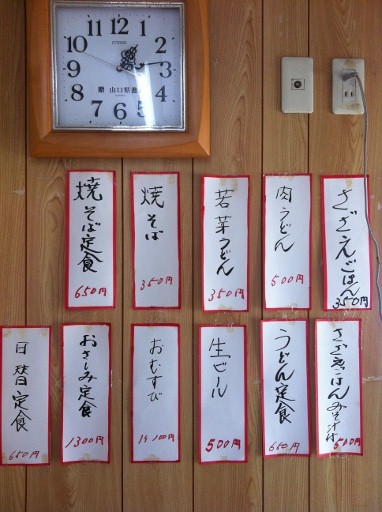 CITIZEN
12
1
2
3
4
5
6
7
8
9
10
11
贈 山口県漁
焼そば定食
650円
焼そば
350円
若菜うどん
350円
肉うどん
500円
さざえごはん
350円
日替定食
650円
おさしみ定食
1300円
おむすび
1ケ100円
生ビール
500円
うどん定食
660円
さざえごはんみそ汁付
500円